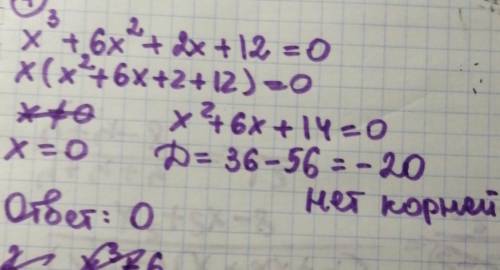 x³ + 6x² + 2x + 12 = 0
x(x² + 6x + 2 + 12) = 0
x ≠ 0 x² + 6x + 14 = 0
x = 0 Д = 36 - 56 = -20
нет корней
Ответ: 0